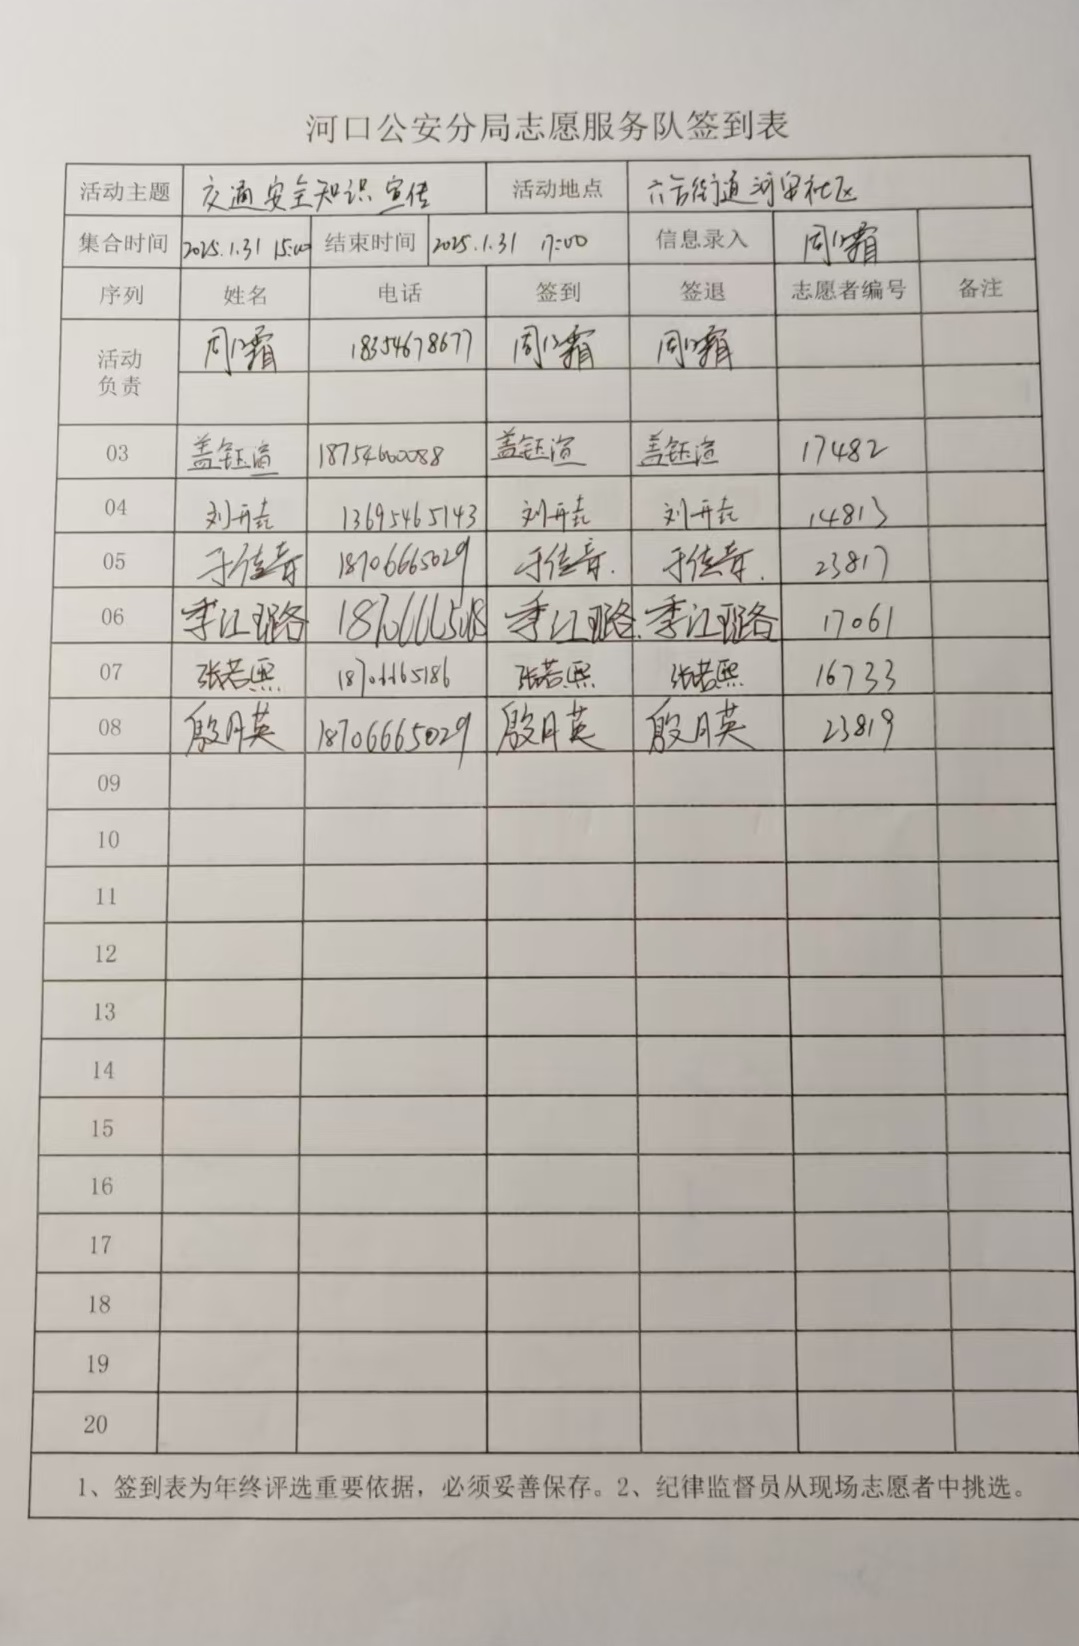 河口公安分局志愿服务队签到表
活动主题 交通安全知识宣传 活动地点 六合街道河安社区
集合时间 2025.1.31 15:00 结束时间 2025.1.31 17:00 信息录入 周小霜
序列 姓名 电话 签到 签退 志愿者编号 备注
活动负责 周小霜 18354678677 周小霜 周小霜
03 盖钰渲 18754600088 盖钰渲 盖钰渲 17482
04 刘开垚 13695465143 刘开垚 刘开垚 14813
05 于佳奇 18706665029 于佳奇. 于佳奇. 23817
06 季江璐 季江璐. 季江璐 17061
07 张若熙 18706665186 张若熙 张若熙 16733
08 殷月英 18706665029 殷月英 殷月英 23819
09
10
11
12
13
14
15
16
17
18
19
20
1、签到表为年终评选重要依据，必须妥善保存。2、纪律监督员从现场志愿者中挑选。